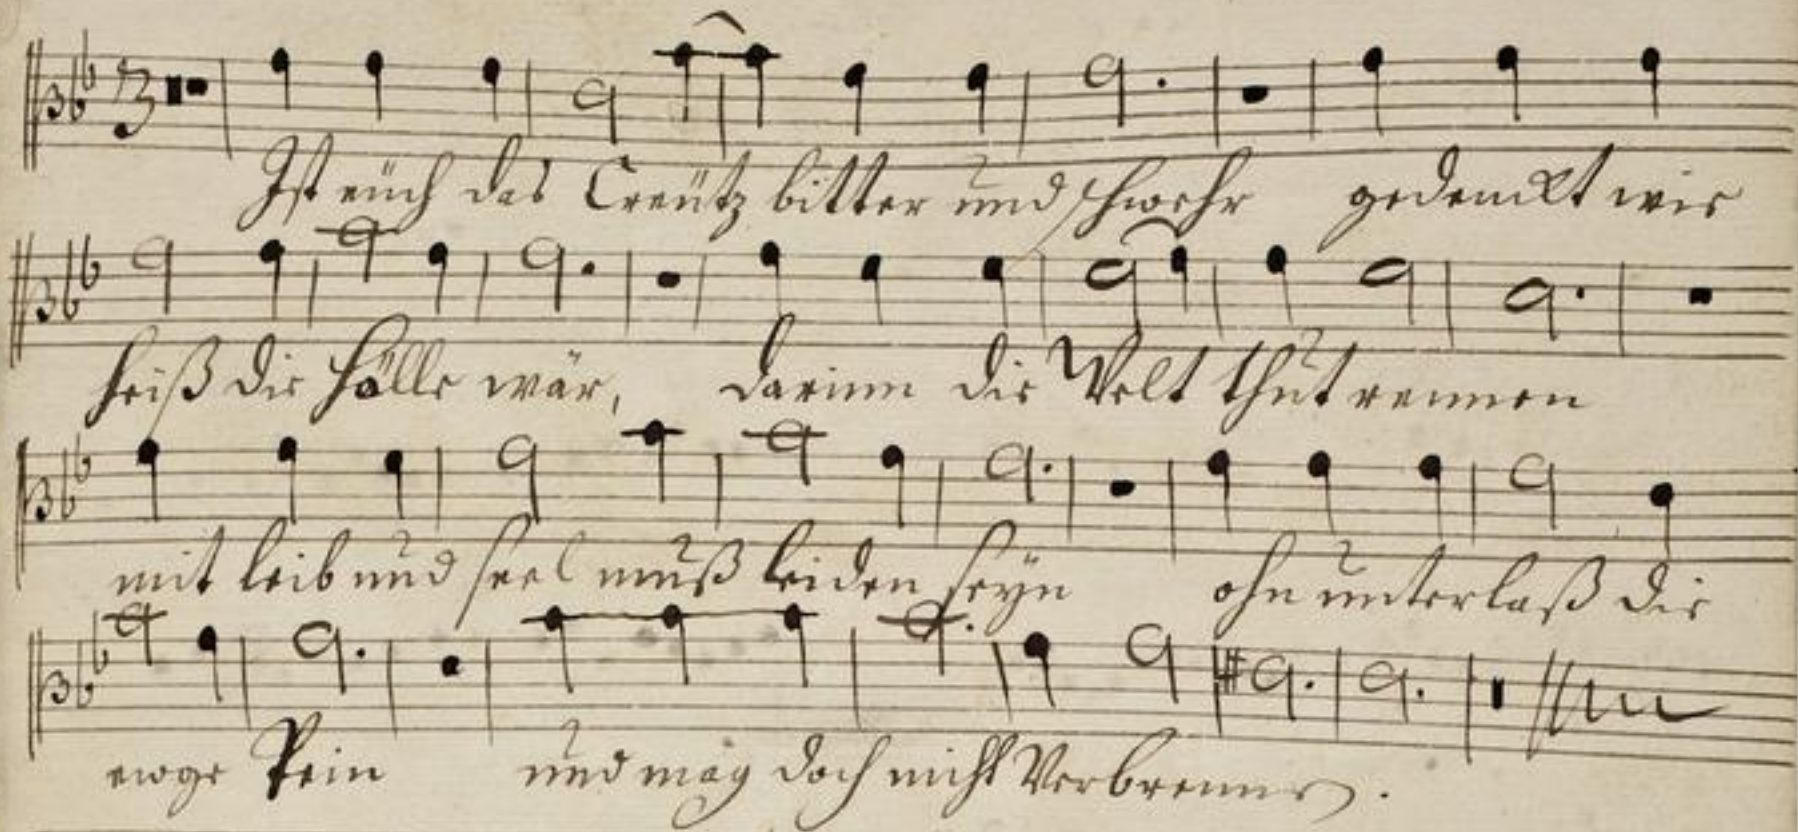 Ist eüch das Creütz bitter und schwehr gedenckt wie
heiß die hölle wär, darinn die Welt thut rennen
mit leib und seel muß leiden seyn ohn unterlaß die
ewge Pein und mag doch nicht Verbrennen.